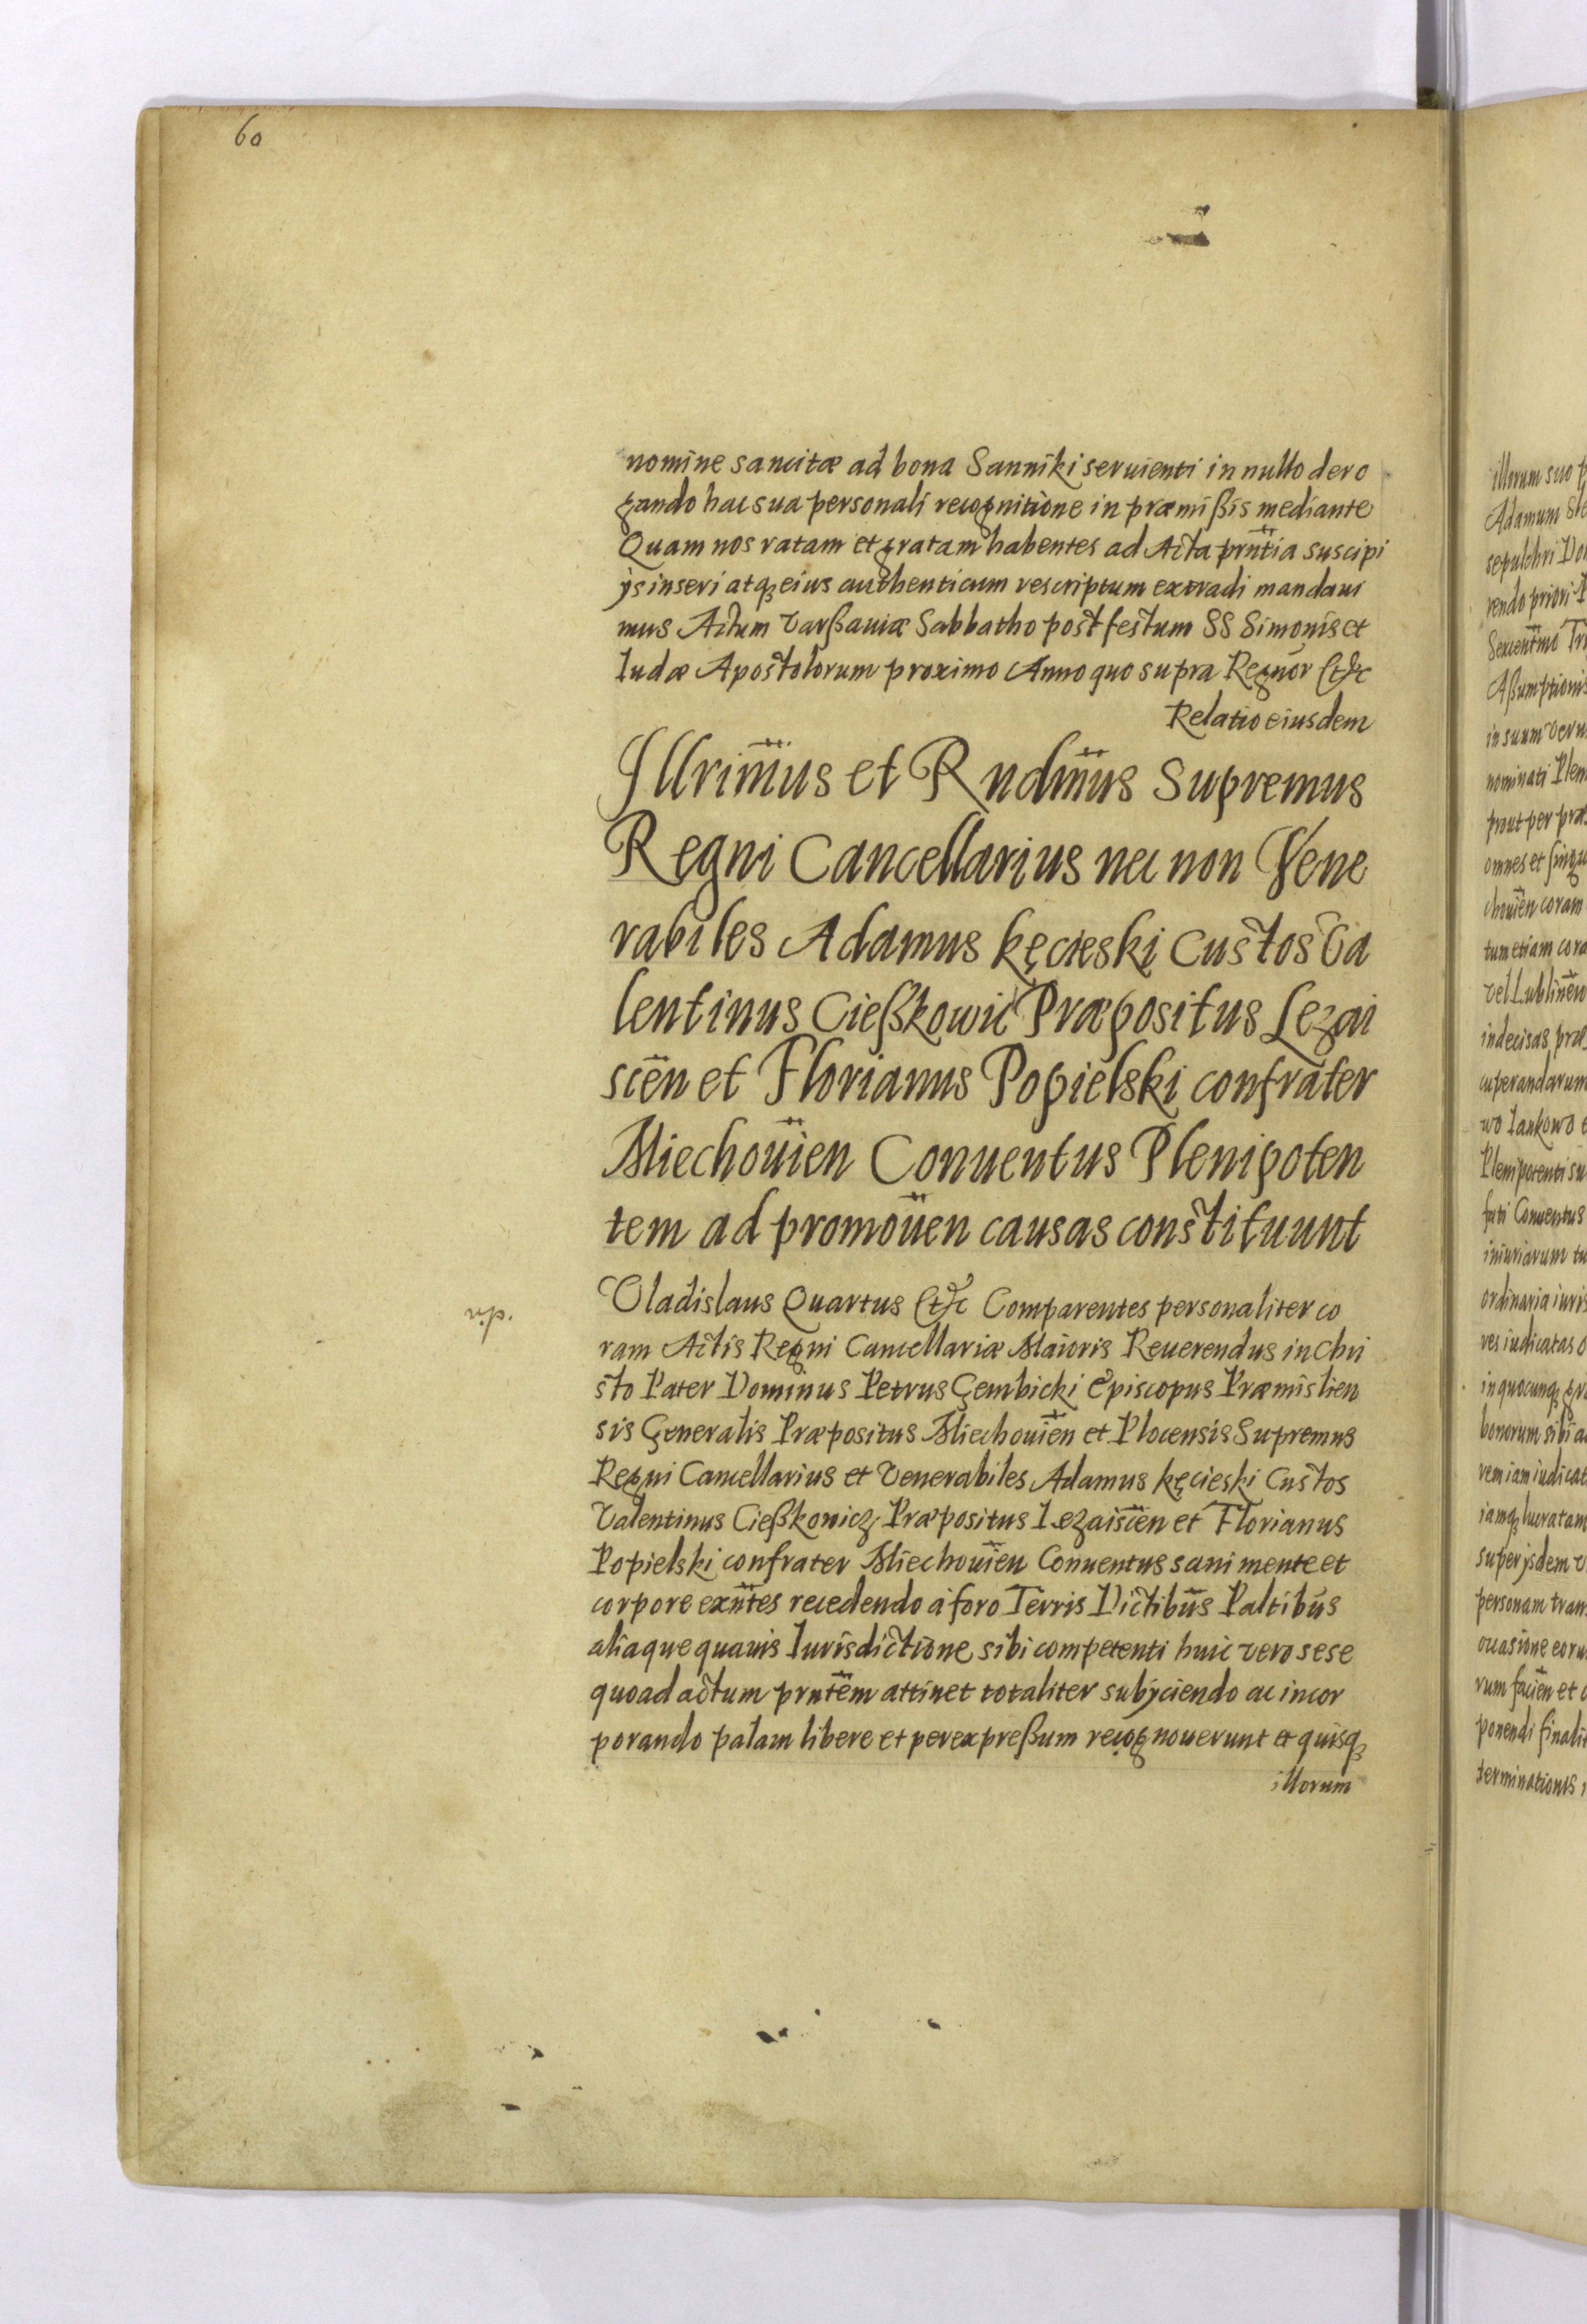 60
nomine sancitæ ad bona Sanniki seruienti in nullo dero
gando hac sua personali recognitione in præmißis mediante
Quam nos ratam et gratam habentes ad Acta prñtia suscipi
ÿs inseri atqȝ eius authenticum rescriptum extradi mandaui
mus Actum Varßauiæ Sabbatho post festum SS Simonis et
Iudæ Apostolorum proximo Anno quo supra Regnor Etc
Relatio eiusdem
Illrim̃us et Rndm̃us Supremus
Regni Cancellarius nec non Vene
rabiles Adamus Kęcieski Custos Va
lentinus Cießkowic Præpositus Lezai
scen̄ et Florianus Popielski confrater
Miechouien̄ Conuentus Plenipoten
tem ad promouen̄ causas constituunt
Vladislaus Quartus Etc Comparentes personaliter co
ram Actis Regni Cancellariæ Maioris Reuerendus in Chri
sto Pater Dominus Petrus Gembicki Episcopus Præmislien
sis Generalis Præpositus Miechouien̄ et Plocensis Supremus
Regni Cancellarius et Venerabiles Adamus Kęcieski Custos
Valentinus Cießkowicz Præpositus Lezaiscen̄ et Florianus
Popielski confrater Miechouien̄ Conuentus sani mente et
corpore exñtes recedendo a foro Terris Dictibūs Paltibūs
aliaque quauis Iurisdictione sibi competenti huic vero sese
quoad actum prñtem attinet totaliter subÿciendo ac incor
porando palam libere et per expreßum recognouerunt et quisqȝ
illorum
illorum suo
Adamum
sepulchri
rendo priori
Aßumptionis
in suum
nominati
prout per
omnes et
chouien̄ coram
tum etiam
vel
indecisas
cuperandarum
wo Iankowo
Plenipotenti
Conuentus
iniuriarum
ordinaria
res iudicatas
in quocunqȝ
bonorum sibi
rem iam
iamqȝ lucratam
super ÿsdem
personam
occasione
rum facien̄ et
ponendi
terminationis